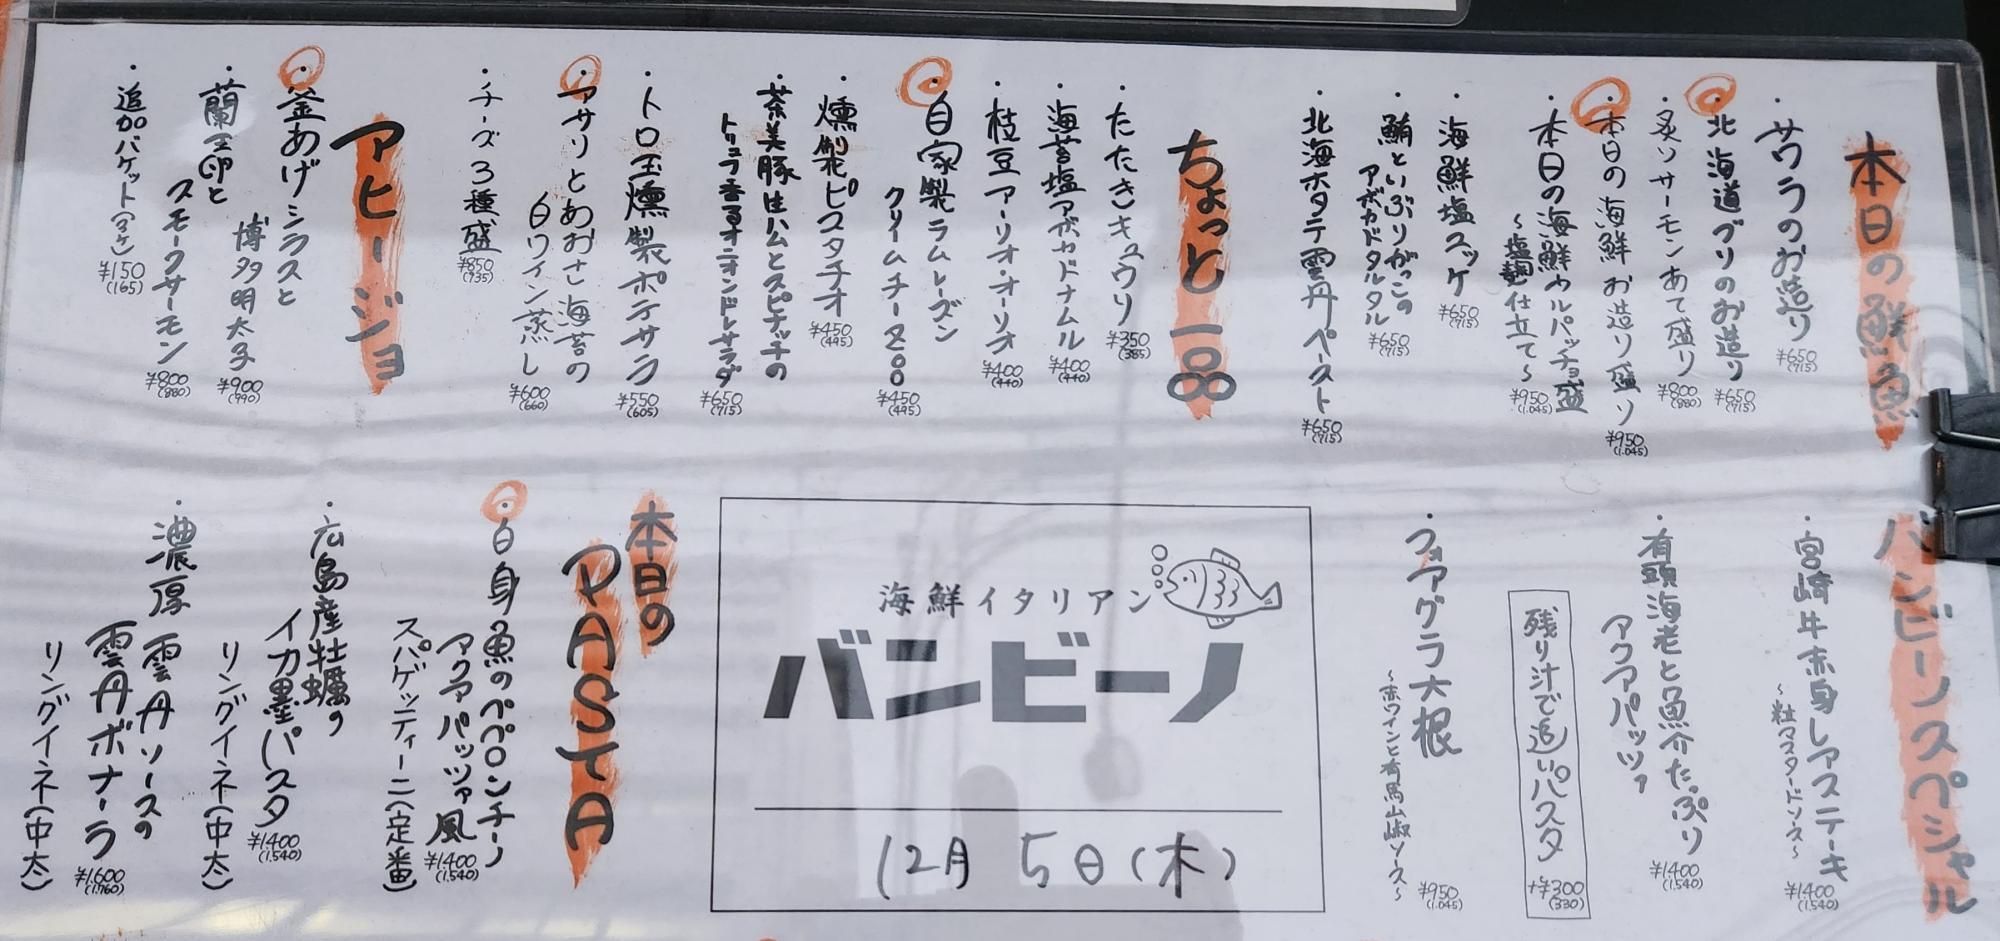 本日の鮮魚
・サワラのお造り ¥650 (715)
・北海道ブリのお造り ¥650 (715)
・炙りサーモンあて盛り ¥800 (880)
・本日の海鮮お造り盛り ¥950 (1.045)
・本日の海鮮カルパッチョ盛
～塩麹仕立て～ ¥950 (1.045)
・海鮮塩ユッケ ¥650 (715)
・鮪といぶりがっこの
アボカドタルタル ¥650 (715)
・北海ホタテ雲丹ペースト ¥650 (715)
ちょっと一品
・たたきキュウリ ¥350 (385)
・海苔塩アボカドナムル ¥400 (440)
・枝豆アーリオ・オーリオ ¥400 (440)
・自家製ラムレーズン
クリームチーズ ¥450 (495)
・燻製ピスタチオ ¥450 (495)
・茶美豚生ハムとスピナッチの
トリュフ香るオニオンドレサラダ ¥650 (715)
・トロ玉燻製ポテサラ ¥550 (605)
・アサリとあおさ海苔の
白ワイン蒸し ¥600 (660)
・チーズ3種盛 ¥850 (935)
アヒージョ
・釜あげシラスと
博多明太子 ¥900 (990)
・蘭王卵と
スモークサーモン ¥800 (880)
・追加バケット(4ケ) ¥150 (165)
バンビーノスペシャル
・宮崎牛赤身レアステーキ
～粒マスタードソース～ ¥1.400 (1.540)
・有頭海老と魚介たっぷり
アクアパッツァ ¥1.400 (1.540)
残り汁で追いパスタ +¥300 (330)
・フォアグラ大根
～赤ワインと有馬山椒ソース～ ¥950 (1.045)
海鮮イタリアン
バンビーノ
12月5日(木)
本日の
PASTA
・白身魚のペペロンチーノ
アクアパッツァ風 ¥1.400 (1.540)
スパゲッティーニ(定番)
・広島産牡蠣の
イカ墨パスタ ¥1.400 (1.540)
リングイネ(中太)
・濃厚 雲丹ソースの
雲丹ボナーラ ¥1.600 (1.760)
リングイネ(中太)